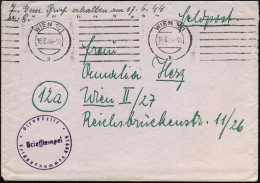 2. Dem. Brief erhalten am 17. 6. 44
WIEN
16.6.44
Feldpost
Frau
Amalia Herz
12a
Wien II/27
Reichsbrückenstr. 11/26
Dienststelle
Briefstempel
Feldpostnummer